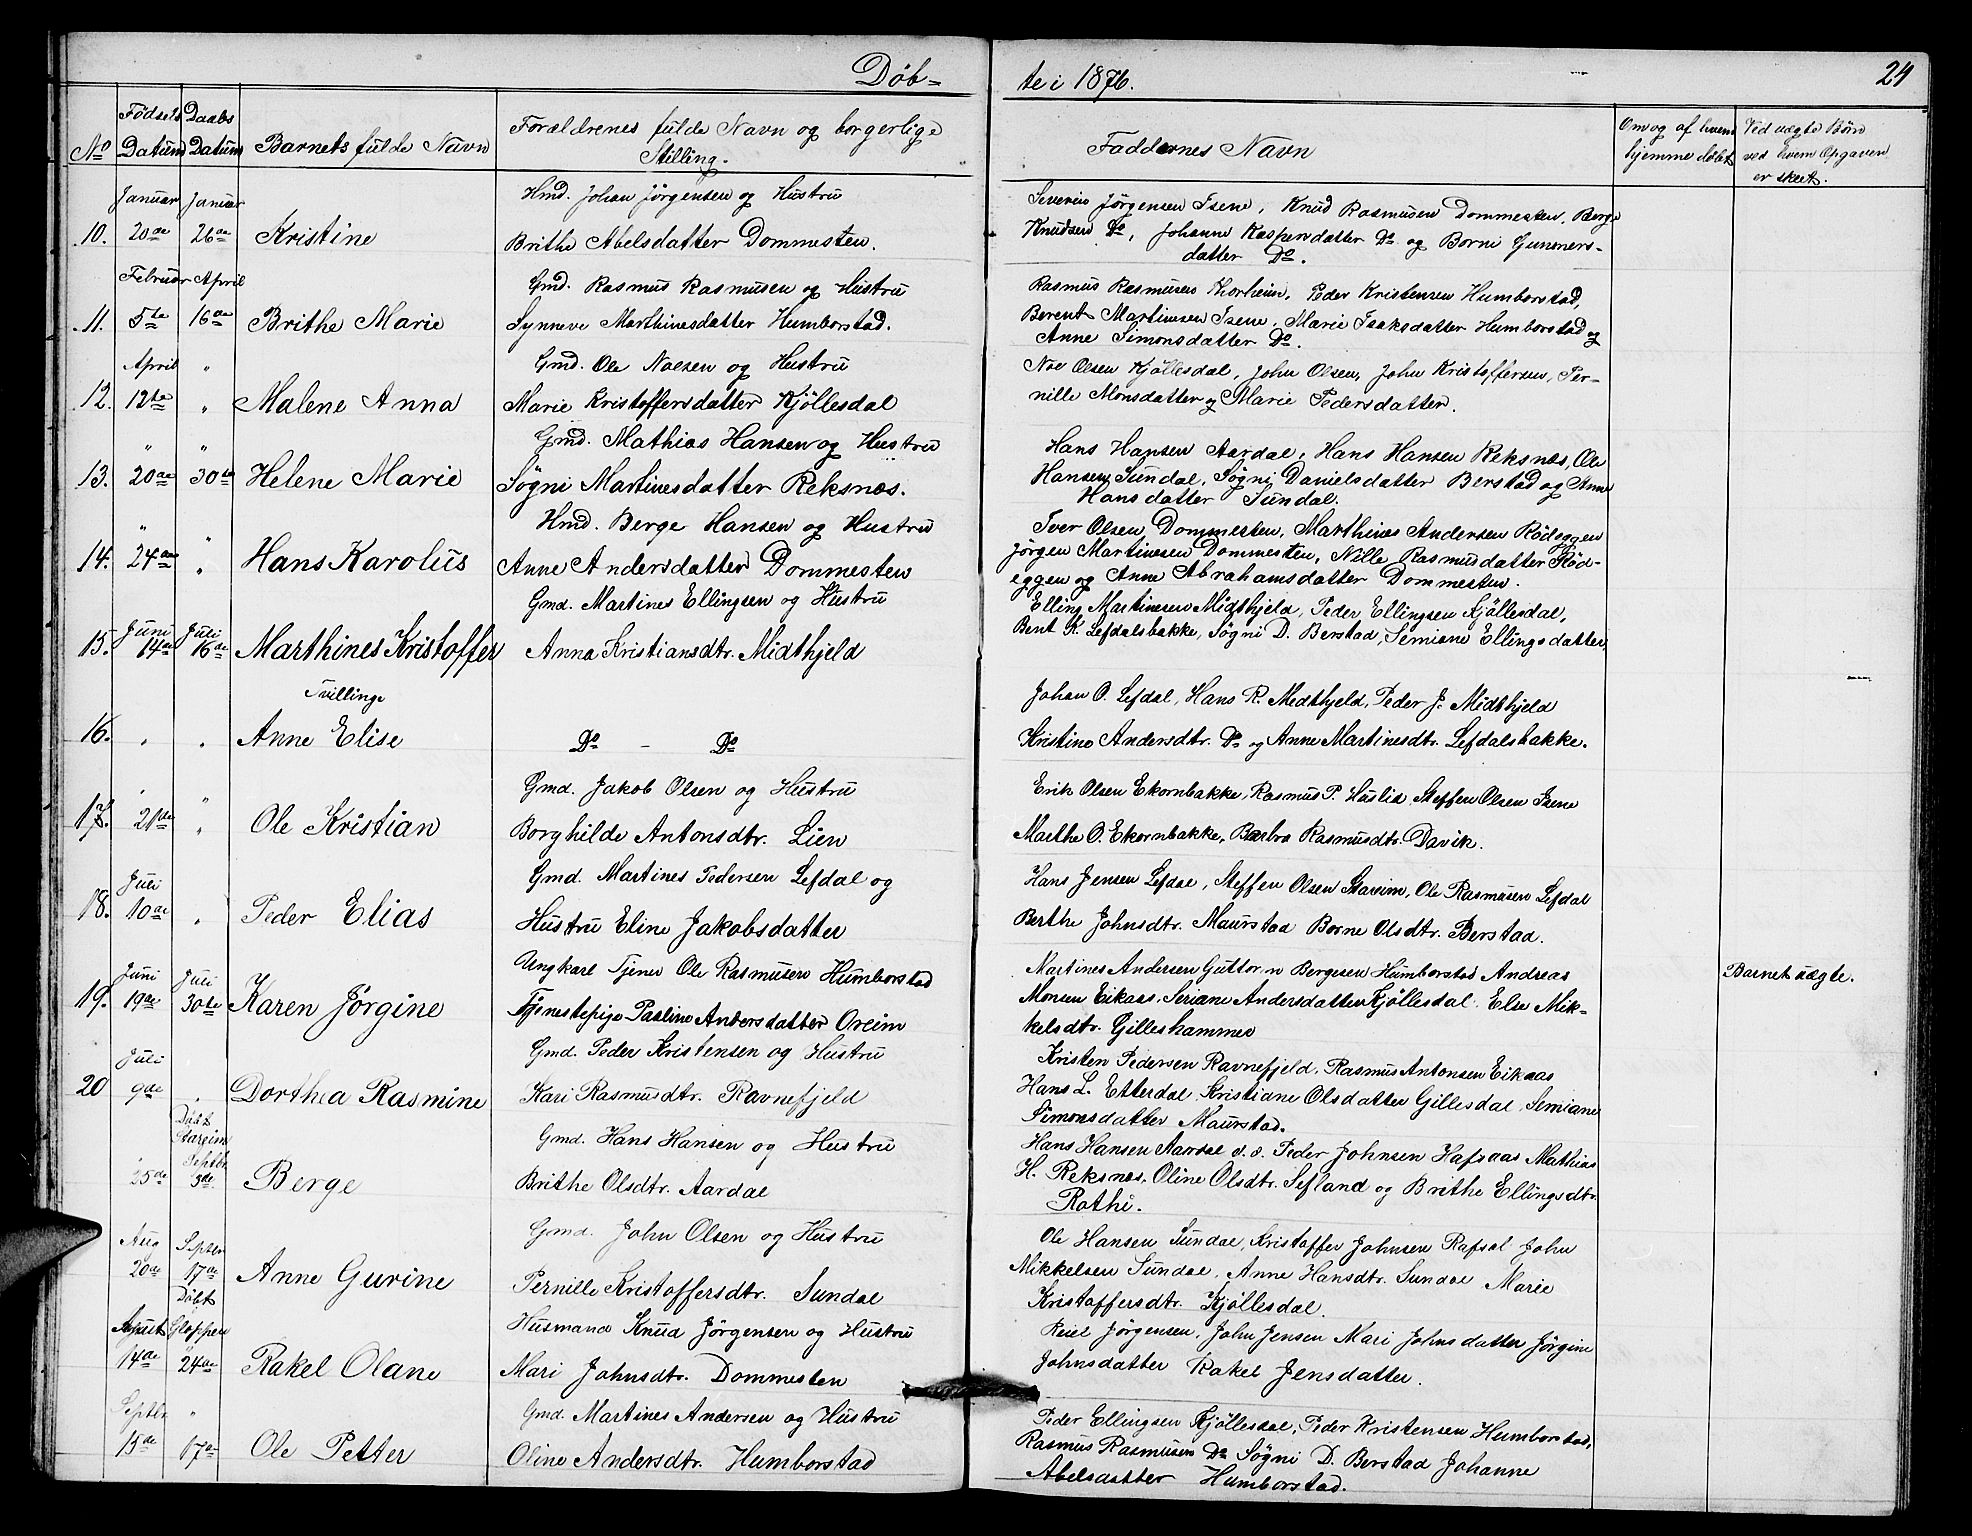 Døb=
te i 1876.
24
No
Fødsels Datum
Daabs Datum
Barnets fulde Navn
Forældrenes fulde Navn og borgerlige Stilling.
Faddernes Navn
Om og af hvem hjemme døbt
Ved uægte Børn ved hvem Opgaven er skeet.
Januar Januar
10. 20de 26de Kristine
Hmd. Johan Jörgensen og Hustru
Brithe Abelsdatter Dommesten.
Severin Jörgensen Isene, Knud Rasmusen Dommesten, Berge
Knudsen Do, Johanne Kaspersdatter Do og Borni Gunners-
datter Do.
Februar April
11. 5te 16de Brithe Marie
Gmd. Rasmus Rasmusen og Hustru
Synneve Marthinesdatter Humborstad.
Rasmus Rasmusen Thorheim, Peder Kristensen Humborstad,
Berent Martinesen Isene, Marie Isaksdatter Humborstad og
Anne Simonsdatter Do.
April "
12. 12te " Malene Anna
Gmd. Ole Noesen og Hustru
Marie Kristoffersdatter Kjöllesdal
Noe Olsen Kjöllesdal, John Olsen, John Kristoffersen, Per-
nille Monsdatter og Marie Pedersdatter.
" "
13. 20de 30te Helene Marie
Gmd. Mathias Hansen og Hustru
Søgni Martinesdatter Reksnæs.
Hans Hansen Aardal, Hans Hansen Reksnæs, Ole
Hansen Sundal, Søgni Danielsdatter Berstad og Anne
Hansdatter Sundal.
" "
14. 24de " Hans Karolus
Hmd. Berge Hansen og Hustru
Anne Andersdatter Dommesten
Iver Olsen Dommesten, Marthines Andersen Rödeggen
Jørgen Martinesen Dommesten, Nille Rasmusdatter Röd-
eggen og Anne Abrahamsdatter Dommesten.
Juni Juli
15. 14de 16de Marthines Kristoffer
Gmd. Martines Ellingsen og Hustru
Anna Kristiansdtr. Midthjeld
Elling Martinesen Midthjeld, Peder Ellingsen Kjöllesdal,
Bent K. Lefdalsbakke, Søgni D. Berstad, Semiane Ellingsdatter,
Tvillinge
16. " " Anne Elise
Do - Do
Johan O. Lefdal, Hans R. Medthjeld, Peder J. Midthjeld
Kristine Andersdtr. Do og Anne Martinesdtr. Lefdalsbakke.
" "
17. 21de " Ole Kristian
Gmd. Jakob Olsen og Hustru
Borghilde Antonsdtr. Lien
Erik Olsen Ekornbakke, Rasmus P. Huslid, Steffen Olsen Isene
Marthe O. Ekornbakke, Barbro Rasmusdtr. Davik.
Juli
18. 10de " Peder Elias
Gmd. Martines Pedersen Lefdal og
Hustru Eline Jakobsdatter
Hans Jensen Lefdal, Steffen Olsen Stareim, Ole Rasmusen Lefdal
Berthe Johnsdtr. Maurstad Borne Olsdtr. Berstad.
Juni Juli
19. 19de 30te Karen Jørgine
Ungkarl Tjener Ole Rasmusen Humborstad
Tjenestepige Pauline Andersdatter Oreim
Martines Andersen Guttorm Bergesen Humborstad Andreas
Monsen Eikaas, Seriane Andersdatter Kjöllesdal. Else Mik-
kelsdtr. Gilleshammer
Barnet uægte.
Juli
20 9de " Dorthea Rasmine
Gmd. Peder Kristensen og Hustru
Kari Rasmusdtr. Ravnefjeld
Kristen Pedersen Ravnefjeld, Rasmus Antonsen Eikaas
Hans L. Etterdal, Kristiane Olsdatter Gillesdal, Semiane
Simonsdatter Maurstad.
Døbt
Stareim
Septbr
" 25de 3de Berge
Gmd. Hans Hansen og Hustru
Brithe Olsdtr. Aardal
Hans Hansen Aardal d. æ. Peder Johnsen Hafsaas Mathias
H. Reksnæs, Oline Olsdtr. Sefland og Brithe Ellingsdtr.
Rothi.
Aug Septbr
20de 17de Anne Gurine
Gmd. John Olsen og Hustru
Pernille Kristoffersdtr. Sundal
Ole Hansen Sundal, Kristoffer Johnsen Rafsal John
Mikkelsen Sundal, Anne Hansdtr. Sundal Marie
Kristoffersdtr. Kjöllesdal.
Døbt
August Gloppen
14de 24de Rakel Olane
Husmand Knud Jørgensen og Hustru
Mari Johnsdtr. Dommesten
Reiel Jørgensen, John Jensen Mari Johnsdatter Jørgine
Johnsdatter Rakel Jensdatter.
Septbr "
15de 17de Ole Petter
Gmd. Martines Andersen og Hustru
Oline Andersdtr. Humborstad
Peder Ellingsen Kjöllesdal, Peder Kristensen Humborstad,
Rasmus Rasmusen Do Søgni D. Berstad Johanne
Abelsdatter Humborstad.